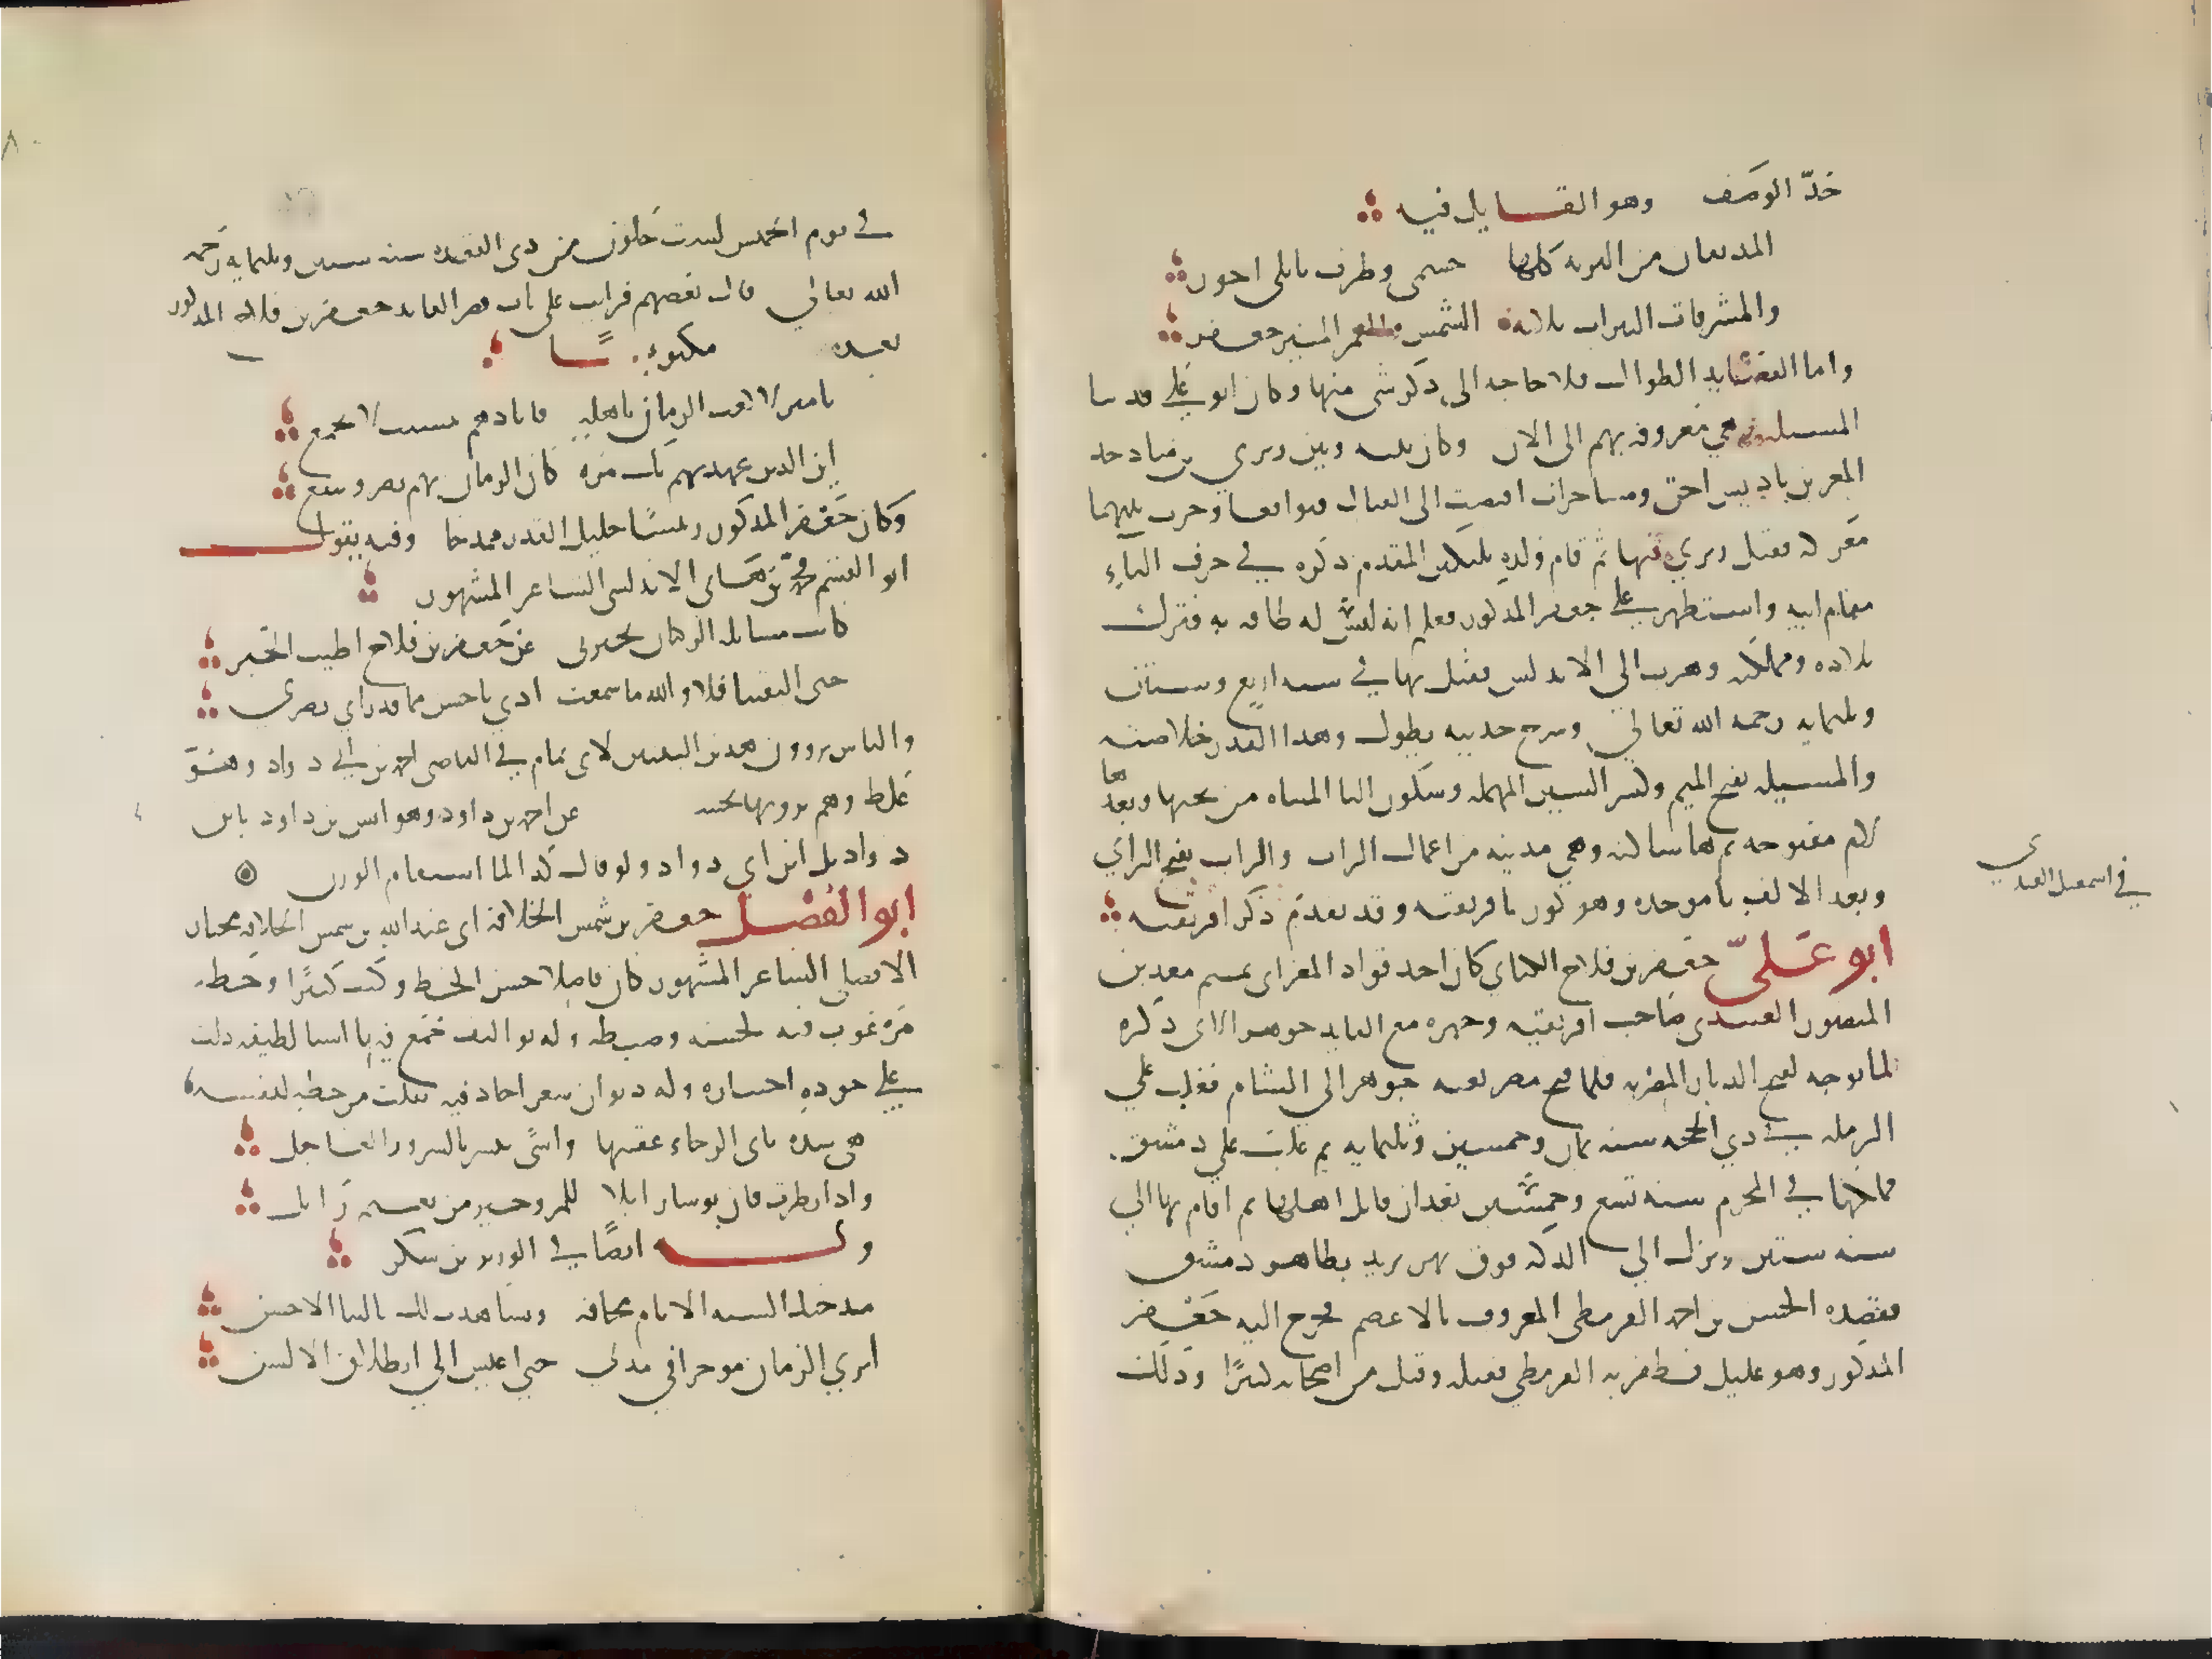 حدّ الوصف وهو القايل فيه
المدنفان من البريه كلها جسمي وطرف بابلي احور
والمشرقات النيرات ثلاثة الشمس والقمر المنير وجعفر
واما القصايد الطوال فلا حاجه الى ذكر شي منها وكان ابو علي قد بنا
المسيله وهي معروفه بهم الى الان وكان بينه وبين زيري بن مناد جد
المعز بن باديس احن ومشاحرات افضت الى القتال فتواقعا وجرت بينهما
معركه فقتل زيري فيها ثم قام ولده بلكين المقدم ذكره في حرف الباء
مقام ابيه واستظهر على جعفر المذكور فعلم انه ليس له طاقه به فترك
بلاده ومملكته وهرب الى الاندلس فقتل بها في سنه اربع وستين
وثلثمايه رحمه الله تعالى وشرح حديثه يطول وهذا القدر خلاصته
والمسيله بفتح الميم وكسر السين المهمله وسكون اليا المثناه من تحتها وبعدها
لام مفتوحه ثم ها ساكنه وهي مدينه من اعمال الزاب والزاب بفتح الزاي
وبعد الالف با موحده وهو كوره بافريقيه وقد تقدم ذكر افريقيه
ابو علي جعفر بن فلاح الكتامي كان احد قواد المعز ابي تميم معد بن
المنصور العبيدي صاحب افريقيه وجهزه مع القايد جوهر الاتي ذكره
لما توجه لفتح الديار المصريه فلما فتح مصر بعثه جوهر الى الشام فغلب على
الرمله في ذي الحجه سنه ثمان وخمسين وثلثمايه ثم غلب على دمشق
فملكها في المحرم سنه تسع وخمسين بعد ان قاتل اهلها ثم اقام بها الى
سنه ستين ونزل الى الدكه فوق نهر يزيد بظاهر دمشق
فقصده الحسن بن احمد القرمطي المعروف بالاعصم فخرج اليه جعفر
المذكور وهو عليل فظفر به القرمطي فقتله وقتل من اصحابه كثيرًا وذلك
في اسمعيل العبيدي
في يوم الخميس لست خلون من ذي القعده سنه ستين وثلثمايه رحمه
الله تعالى قال بعضهم قرات على باب قصر القايد جعفر بن فلاح المذكور
بعد مكتوبًا
يا منزلا لعب الزمان باهله فابادهم بتشتت لا يجمع
اين الذين عهدتهم بك مره كان الزمان بهم يضر وينفع
وكان جعفر المذكور رئيسًا جليل القدر ممدحا وفيه يقول
ابو القسم محمد بن هاني الاندلسي الشاعر المشهور
كانت مسايلة الركبان تخبرني عن جعفر بن فلاح اطيب الخبر
حتى التقينا فلا والله ما سمعت اذني باحسن مما قد راى بصري
والناس يروون هذين البيتين لابي تمام في القاضي احمد بن ابي دواد وهو
غلط وهم يرويهما عن احمد بن داود وهو ليس بن داود بل ابن
دواد بل ابن ابي دواد ولو قال كذا لما استقام الوزن
ابو الفضل جعفر بن شمس الخلافه ابي عبد الله بن شمس الخلافه مختار
الافضلي الشاعر المشهور كان فاضلا حسن الخط وكتب كثيرًا وخطه
مرغوب فيه لحسنه وضبطه وله تواليف جمع فيها اشيا لطيفه دلت
على جوده اختياره وله ديوان شعر اجاد فيه نقلت من خطه لنفسه
هي شده ياتي الرخاء عقبها واسًى يبشر بالسرور العاجل
واذا نظرت فان بوسا زايلا للمرء خير من نعيم زايل
وله ايضًا في الوزير بن شكر
مدحتك السنه الانام مخافه وتشاهدت لك بالثنا الاحسن
اترى الزمان موخرا في مدتي حتى اعيش الى انطلاق الالسن